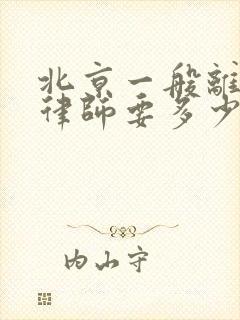 北京一般離
律師要多少
内山守